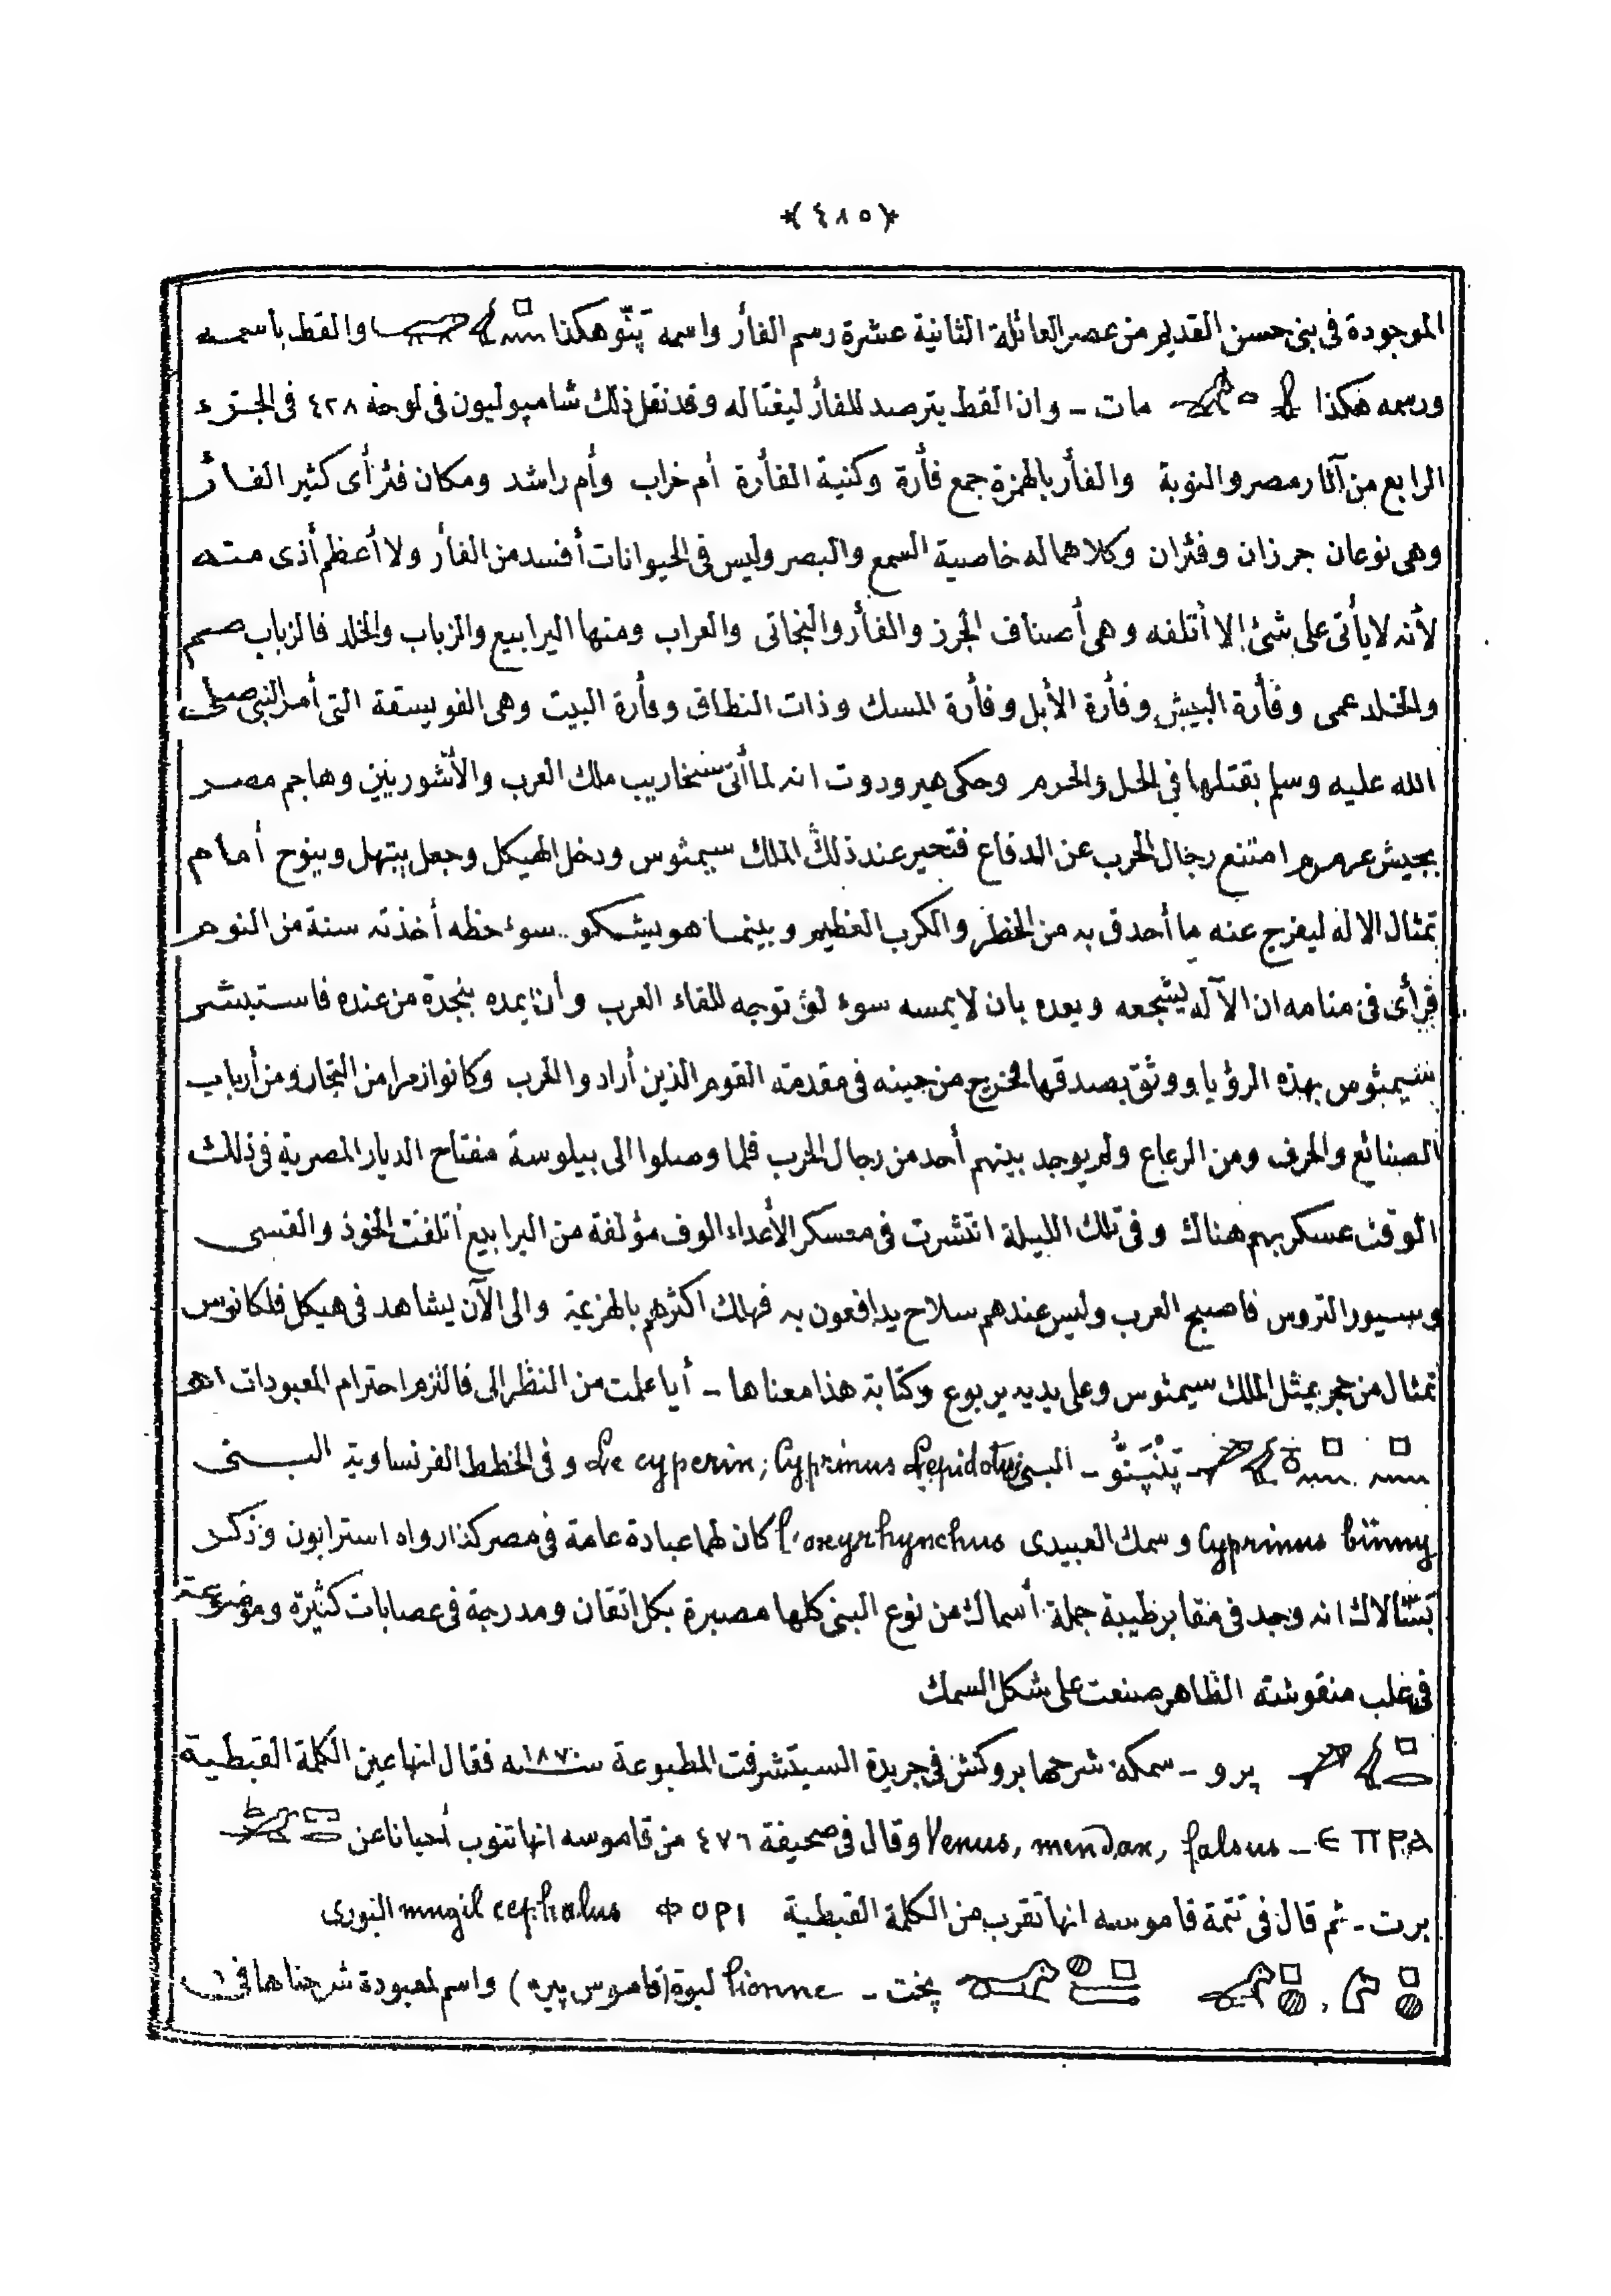 ﴿٤٨٥﴾
الموجودة فى بنى حسن القديم من عصر العائلة الثانية عشرة رسم الفأر واسمه پَنّو هكذا والقط باسمه
ورسمه هكذا مات - وان القط يترصد للفأر ليغتاله وقد نقل ذلك شامپوليون فى لوحة ٤٢٨ فى الجزء
الرابع من آثار مصر والنوبة والفأر بالهمزة جمع فأرة وكنية الفأرة أم خراب وأم راشد ومكان فئر أى كثير الفأر
وهى نوعان جرزان وفئران وكلاهما له خاصية السمع والبصر وليس فى الحيوانات أفسد من الفأر ولا أعظم أذى منه
لأنه لا يأتى على شئ إلا أتلفه وهى أصناف الجرز والفأر والبخاتى والعراب ومنها اليرابيع والزباب والخلد فالزباب صم
والخلد عمى وفأرة البيش وفأرة الأبل وفأرة المسك وذات النطاق وفأرة البيت وهى الفويسقة التى أمر النبى صلى
الله عليه وسلم بقتلها فى الحل والحرم وحكى هيرودوت انه لما أتى سنخاريب ملك العرب والأشوريين وهاجم مصر
بجيش عرمرم امتنع رجال الحرب عن الدفاع فتحير عند ذلك الملك سيمثوس ودخل الهيكل وجعل يبتهل وينوح أمام
تمثال الاله ليفرج عنه ما أحدق به من الخطر والكرب العظيم وبينما هو يشكو سوء حظه أخذته سنة من النوم
فرأى فى منامه ان الآله يشجعه ويعده بان لا يمسه سوء لو توجه للقاء العرب وأن يمده بنجدة من عنده فاستبشر
سيمثوس بهذه الرؤيا ووثق بصدقها فخرج من حينه فى مقدمة القوم الذين أرادوا الحرب وكانوا زمرا من التجار ومن أرباب
الصنائع والحرف ومن الرعاع ولم يوجد بينهم أحد من رجال الحرب فلما وصلوا الى بيلوسة مفتاح الديار المصرية فى ذلك
الوقت عسكر بهم هناك وفى تلك الليلة انتشرت فى معسكر الأعداء الوف مؤلفة من اليرابيع أتلفت الخوذ والقسى
وسيور التروس فاصبح العرب وليس عندهم سلاح يدافعون به فهلك اكثرهم بالهزيمة والى الآن يشاهد فى هيكل فلكانوس
تمثال من حجر يمثل الملك سيمثوس وعلى يديه يربوع وكتابة هذا معناها - أيا علمت من النظر الى فالتزم احترام المعبودات اهـ
- پَنْپَنُّو - البنى Le cyperin; Cyprinus Lepidotus وفى الخطط الفرنساوية البنى
Cyprinus binny وسمك العبيدى l'oxyrhynchus كان لهما عبادة عامة فى مصر كذا رواه استرابون وذكر
بَسّالاك انه وجد فى مقابر طيبة جملة أسماك من نوع البنى كلها مصبرة بكل اتقان ومدرجة فى عصابات كثيرة وموضوعة
فى علب منقوشة الظاهر صنعت على شكل السمك
پرو - سمكة شرحها بروكش فى جريدة السيتشرفت المطبوعة سنة ١٨٧ فقال انها عين الكلمة القبطية
ⲈⲠⲢⲀ - Venus, mendax, falsus وقال فى صحيفة ٤٧٦ من قاموسه انها تنوب أحيانا عن
برت - ثم قال فى تتمة قاموسه انها تقرب من الكلمة القبطية ⲪⲞⲢⲒ mugil cephalus البورى
پخت - lionne لبوة (قاموس پيره) واسم لمعبودة شرحناها فى